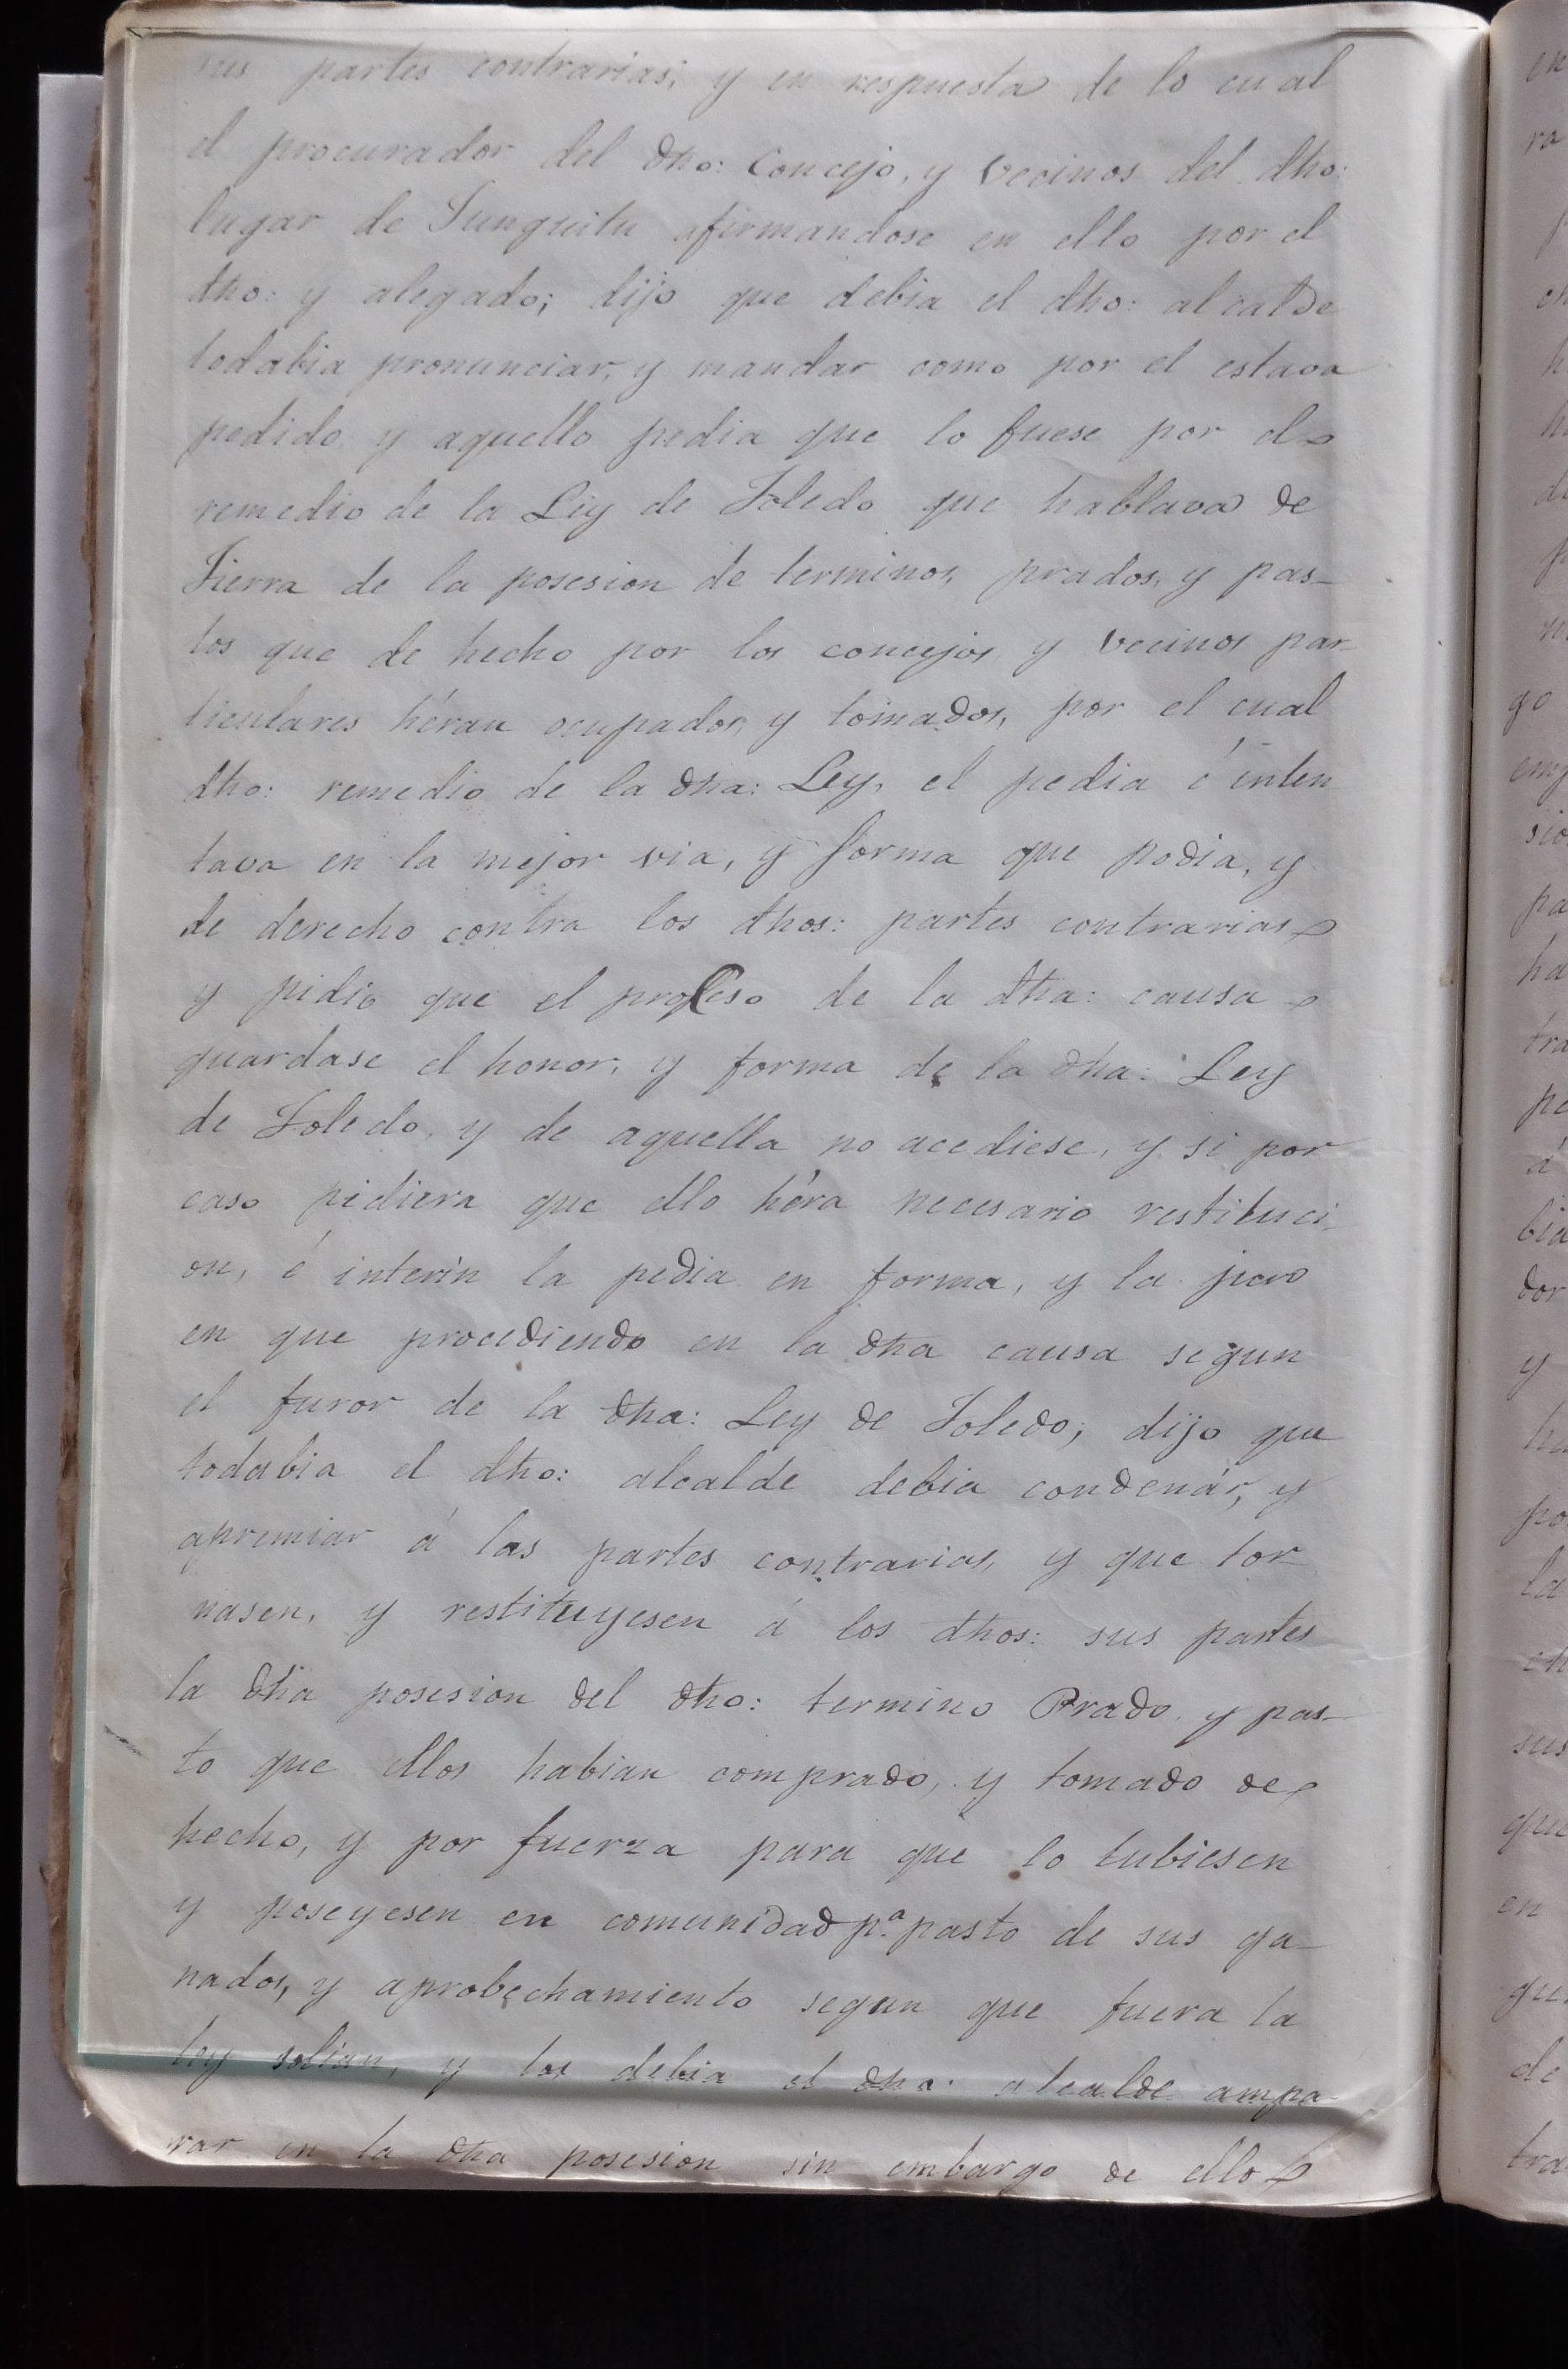 sus partes contrarias; y en respuesta de lo cual
el procurador del dho: Concejo, y vecinos del dho:
lugar de Junguitu afirmandose en ello por el
dho: y alegado; dijo que debia el dho: alcalde
todabia pronunciar, y mandar como por el estava
pedido y aquello pedia que lo fuese por el
remedio de la Ley de Toledo que hablava de
Tierra de la posesion de terminos, prados, y pas-
tos que de hecho por los concejos, y vecinos par-
ticulares héran ocupados, y tomados, por el cual
dho: remedio de la dha: Ley, el pedia é inten
tava en la mejor via, y forma que podia, y
de derecho contra los dhos: partes contrarias
y pidio que el proceso de la dha: causa
guardase el honor, y forma de la dha: Ley
de Toledo, y de aquella no acediese, y si por
caso pidiera que ello héra necesario restituci-
on, é interin la pedia en forma, y la juro
en que procediendo en la dha causa segun
el furor de la dha: Ley de Toledo; dijo que
todabia el dho: alcalde debia condenár, y
apremiar á las partes contrarias, y que tor-
nasen, y restituyesen á los dhos: sus partes
la dha posesion del dho: termino Prado, y pas-
to que ellos habian comprado, y tomado de
hecho, y por fuerza para que lo tubiesen
y poseyesen en comunidad p.ª pasto de sus ga-
nados, y aprobechamiento segun que fuera la
ley solian, y los debia el dho: alcalde ampa-
rar en la dha posesion sin embargo de ello